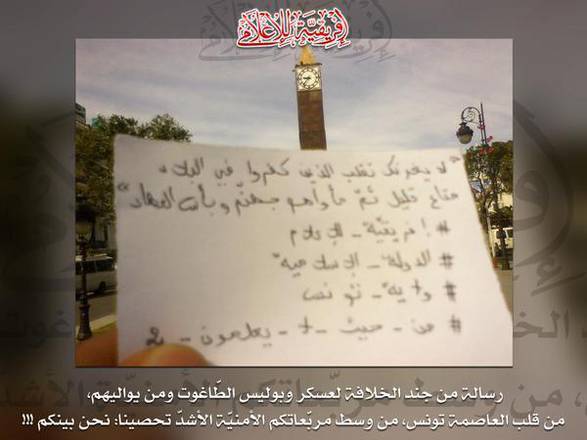 إفريقيّة للإعلام
"لا يغرنك تقلب الذين كفروا في البلاد
متاع قليل ثمّ مأواهم جهنّم وبئس المهاد"
# إفريقيّة_للإعلام
# الدولة_الإسلامية
# ولاية_تونس
# من_حيث_لا_يعلمون_2
رسالة من جند الخلافة لعسكر وبوليس الطّاغوت ومن يواليهم،
من قلب العاصمة تونس، من وسط مربّعاتكم الأمنيّة الأشدّ تحصينا: نحن بينكم !!!